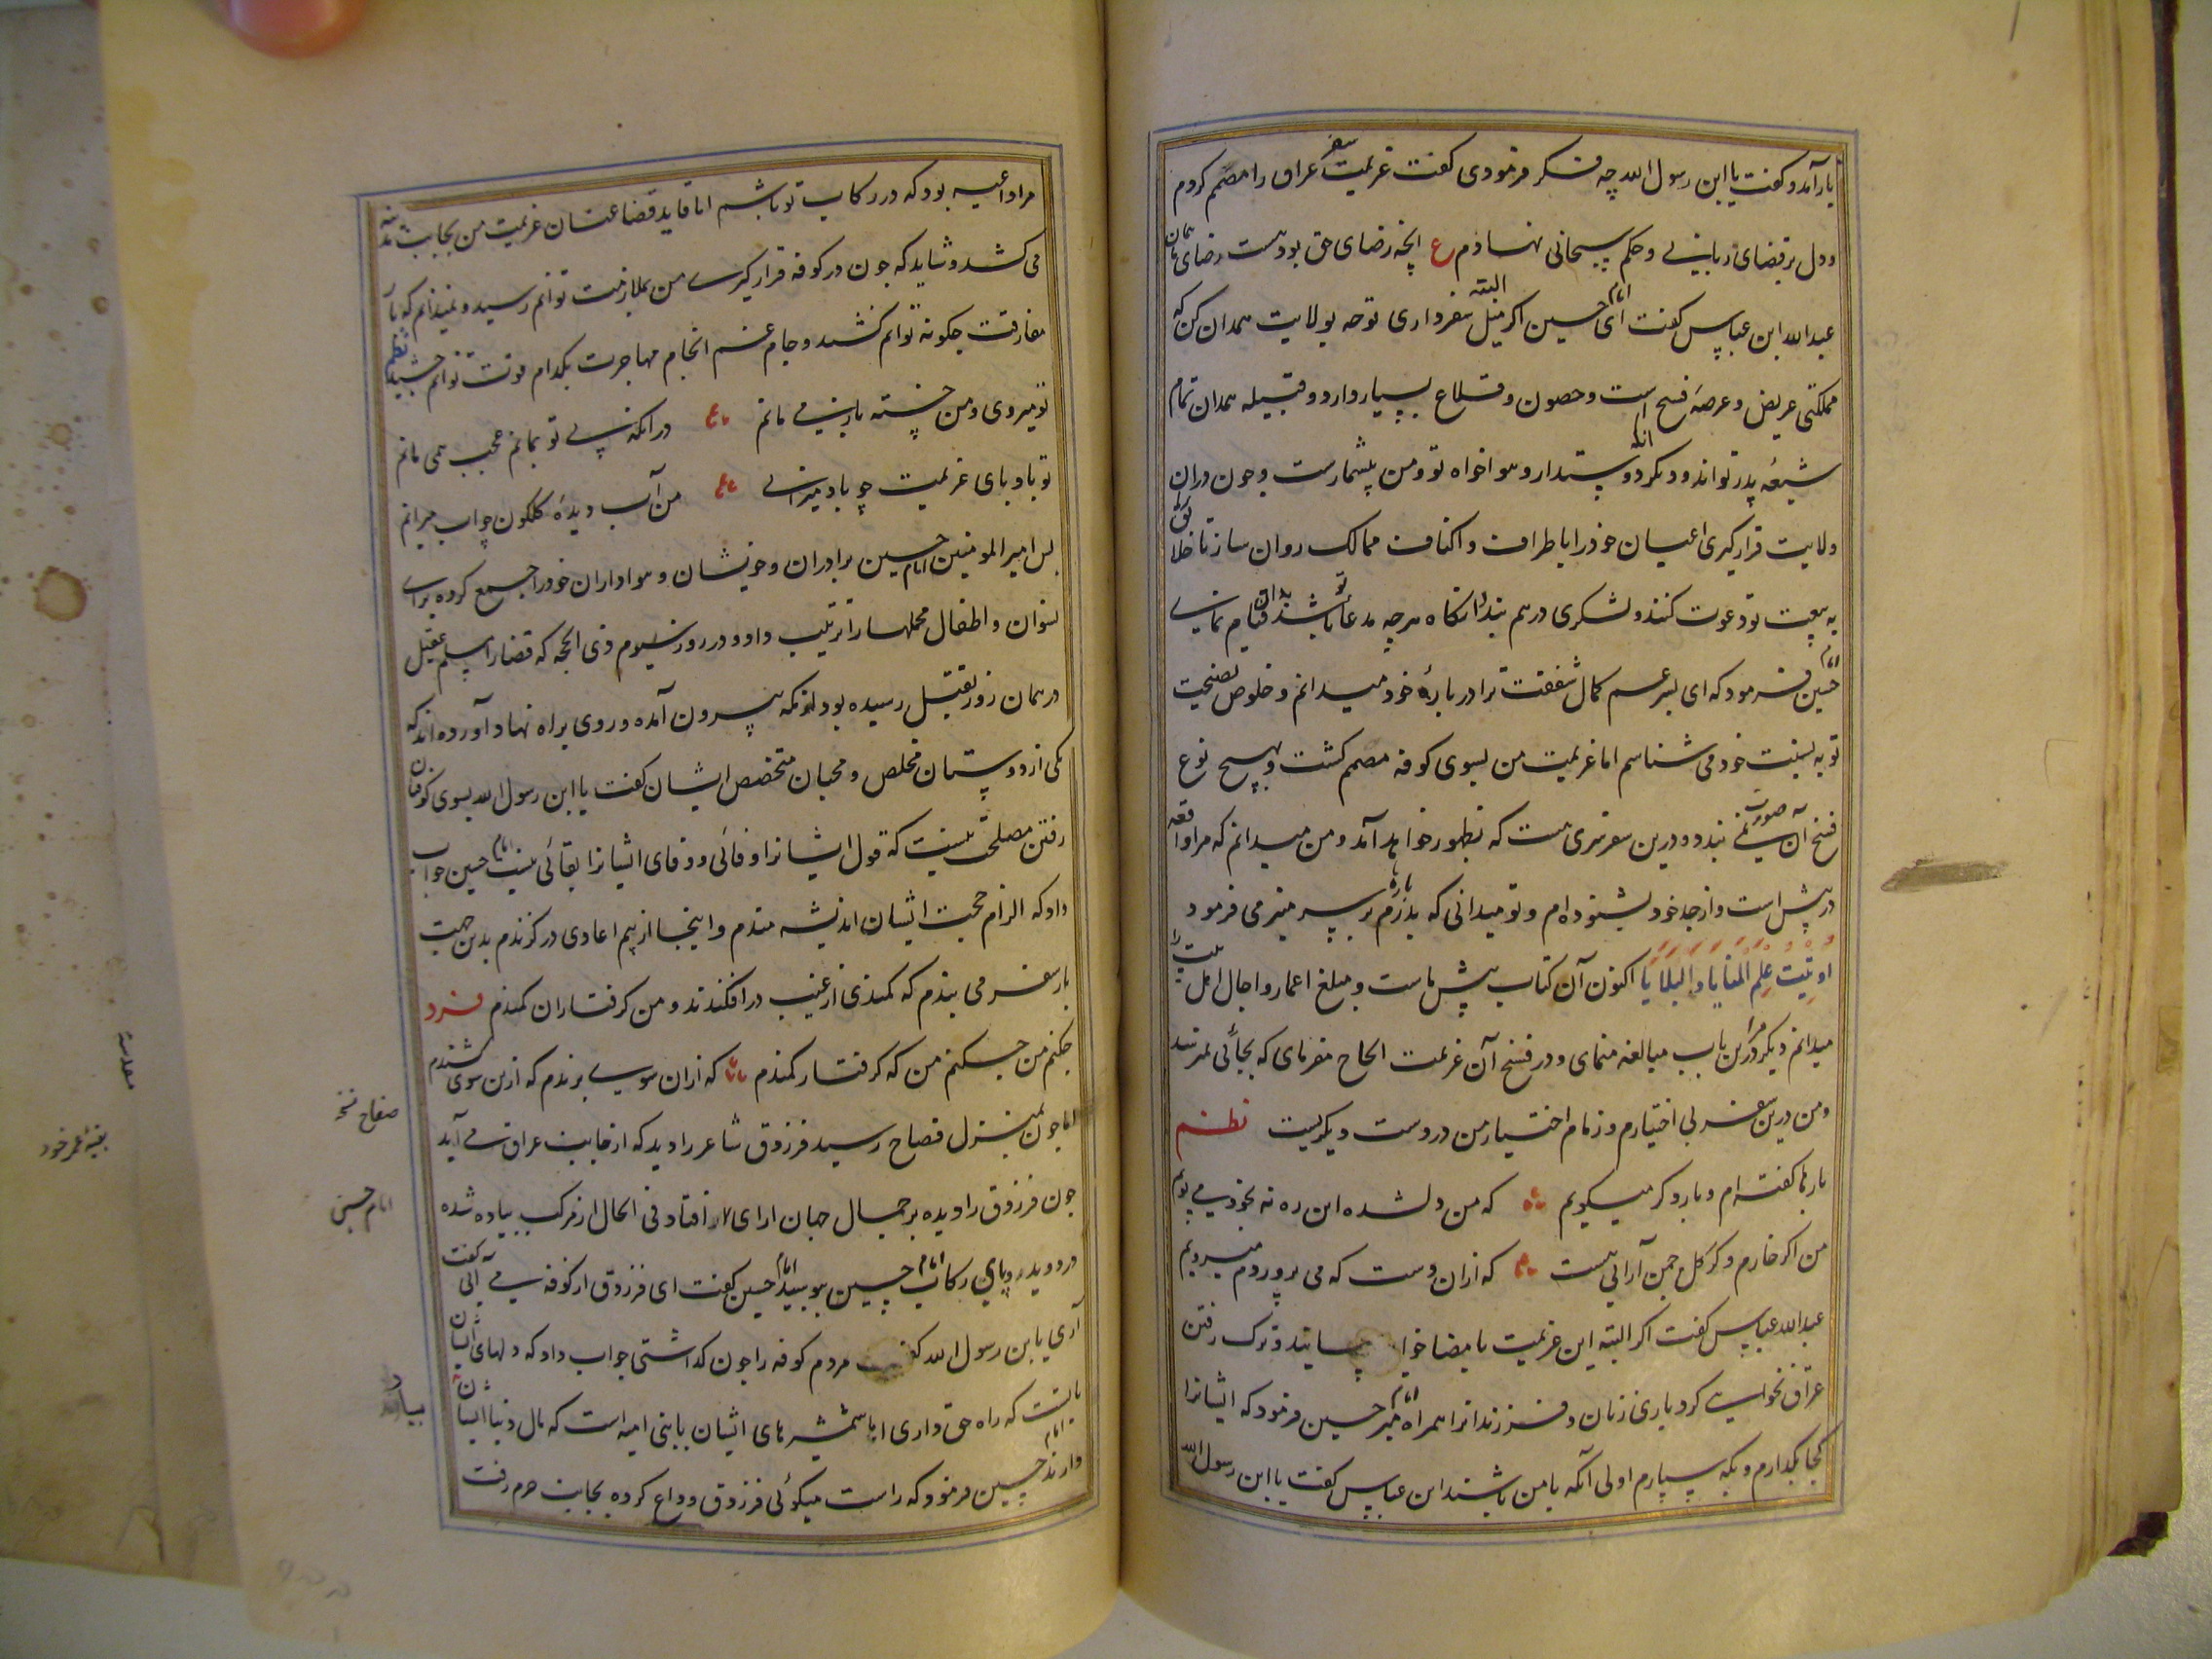 باز آمد و کفت یا ابن رسول الله چه فکر فرمودی کفت عزیمت سفر عراق را مصمم کردم
و دل بر قضای ربانی و حکم سبحانی نهادم ع آنچه رضای حق بودست رضای ما همان
عبد الله ابن عباس کفت ای امام حسین اکر البته میل سفر داری توجه بولایت همدان کن که
مملکتی عریض و عرصهٔ فسیح است و حصون و قلاع بسیار دارد و قبیله همدان تمام
شیعهٔ پدر تو اند و دیکر دوستدار و هواخواه تو و من بیشمارست و چون دران
ولایت قرار کیری اعیان خود را باطراف و اکناف ممالک روان ساز تا خلایق را
به بیعت تو دعوت کنند و لشکری درهم بندد انکاه هرچه مدعای تو باشد بدان قیام نمای
امام حسین فرمود که ای پسر عم کمال شفقت ترا در بارهٔ خود میدانم و خلوص نصیحت
تو به نسبت خود می شناسم اما عزیمت من بسوی کوفه مصمم کشت و بهیچ نوع
فسخ آن صورت نمی بندد و درین سفر سری هست که بظهور خواهد آمد و من میدانم که مرا واقعه
در پیش است و از جد خود شنوده ام و تو میدانی که پدرم بارها بر سر منبر می فرمود
اوتیت علم المنایا والبلایا اکنون آن کتاب پیش ماست و مبلغ اعمار و اجال اهل بیت را
میدانم دیکر مرا درین باب مبالغه منمای و در فسخ آن عزیمت الحاح مفرمای که بجائی نمیرسد
و من درین سفر بی اختیارم و زمام اختیار من در دست دیکریست نظم
بارها کفته ام و بار دکر میکویم که من دلشده این ره نه بخود می پویم
من اکر خارم و کر کل چمن آرائی هست که ازان دست که می پروردم میرویم
عبد الله عباس کفت اکر البته این عزیمت بامضا خواهی رسانید و ترک رفتن
عراق نخواهی کرد باری زنان و فرزندانرا همراه مبر امام حسین فرمود که ایشانرا
کجا بکذارم و بکه سپارم اولی آنکه با من باشند ابن عباس کفت یا ابن رسول الله
مرا داعیه بود که در رکاب تو باشم اما قاید قضا عنان عزیمت من بجانب مدینه
می کشد و شاید که چون در کوفه قرار کیری من بملازمت توانم رسید و نمیدانم که بار
مفارقت چکونه توانم کشید و جام غم انجام مهاجرت بکدام قوت توانم چشید نظم
تو میروی و من خسته باز می مانم در آنکه بی تو بمانم عجب همی مانم
تو باد پای عزیمت چو باد میرانی من آب دیدهٔ کلکون چو آب میرانم
پس امیر المومنین امام حسین برادران و خویشان و هواداران خود را جمع کرده برای
نسوان و اطفال محملها را ترتیب داد و در روز سیوم ذی الحجه که قضا را مسلم عقیل
در همان روز بقتل رسیده بود از مکه بیرون آمده و روی براه نهاد آورده اند که
یکی از دوستان مخلص و محبان متخصص ایشان کفت یا ابن رسول الله بسوی کوفیان
رفتن مصلحت نیست که قول ایشانرا وفائی و وفای ایشانرا بقائی نیست امام حسین جواب
داد که الزام حجت ایشان اندیشه مندم و اینجا از بیم اعادی در کزندم بدین جهت
بار سفر می بندم که کمندی از غیب در افکندند و من کرفتار آن کمندم فرد
چکنم من چکنم من که کرفتار کمندم که ازان سوی برندم که ازین سوی کشندم
اما چون بمنزل فصاح رسید فرزوق شاعر را دید که از جانب عراق می آید
چون فرزوق را دیده بر جمال جهان ارای افتاد فی الحال از مرکب پیاده شده
در دوید و پای رکاب امام حسین ببوسید امام حسین کفت ای فرزوق از کوفه می آیی کفت
آری یا بن رسول الله کفت مردم کوفه را چون کذاشتی جواب داد که دلهای ایشان
باتست که راه حق داری اما شمشیرهای ایشان با بنی امیه است که مال دنیا ایشان
دارند امام حسین فرمود که راست میکوئی فرزوق وداع کرده بجانب حرم رفت
صفاح نسخه
امام حسین
بیار